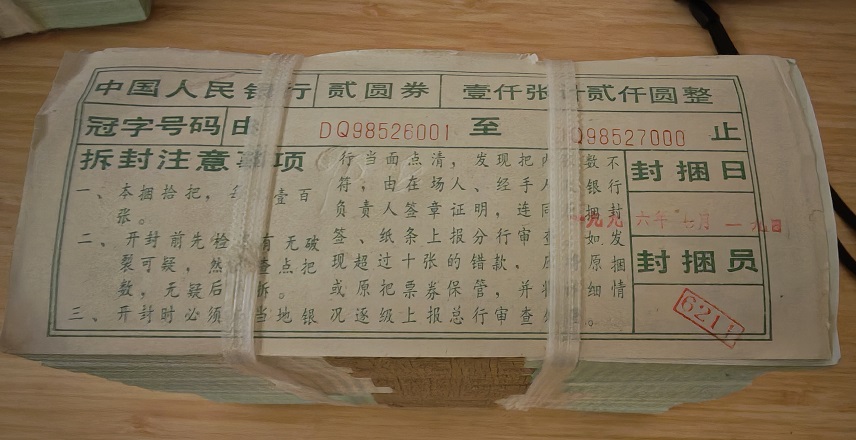 中国人民银行 贰圆券 壹仟张计贰仟圆整
冠字号码由 DQ98526001 至 Q98527000 止
拆封注意事项
一、本捆拾把,壹百
张。
二、开封前先检有无破
裂可疑,然查点把
数,无疑后拆。
三、开封时必须当地银
行当面点清,发现把内数不
符,由在场人、经手人银行
负责人签章证明,连同捆封
签、纸条上报分行审查如发
现超过十张的错款,原捆
或原把票券保管,并将细情
况逐级上报总行审查。
封捆日
一九九六年七月一九日
封捆员
6211